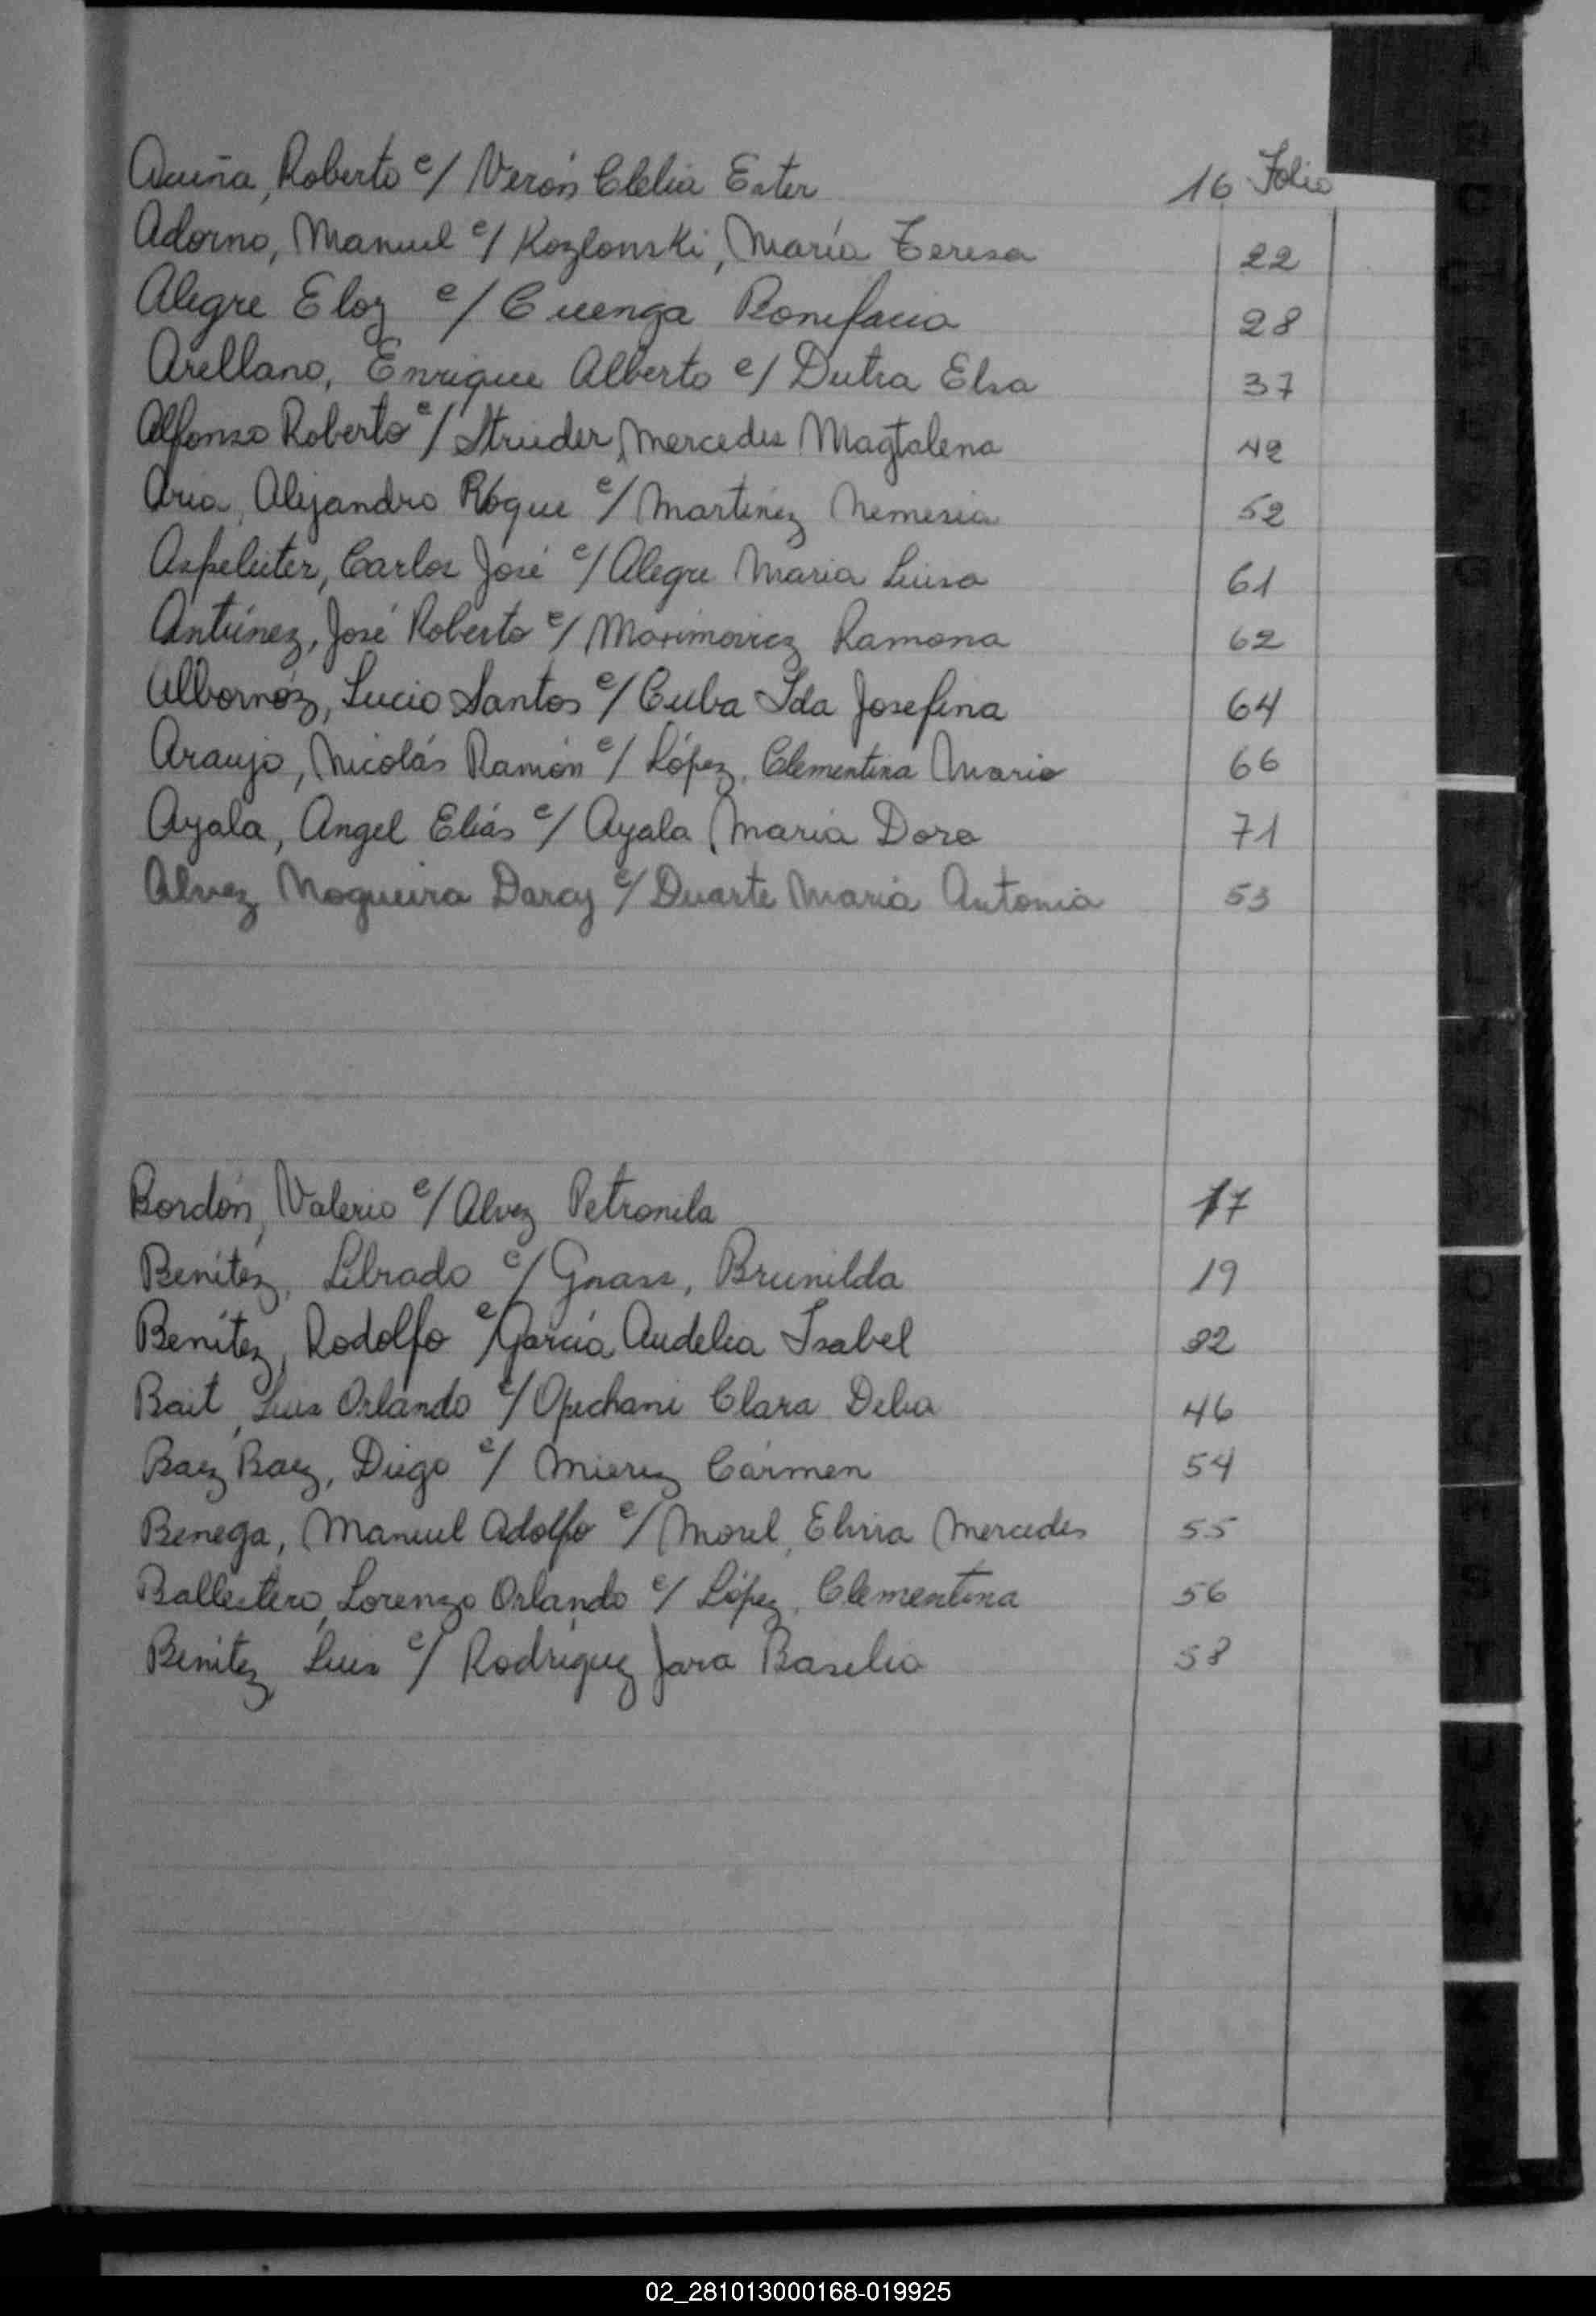 Acuña, Roberto c/ Verón Clelia Ester 16 Folio
Adorno, Manuel c/ Kozlonski, María Teresa 22
Alegre Eloy c/ Cuenga Bonifacia 28
Arellano, Enrique Alberto c/ Dutra Elsa 37
Alfonso Roberto c/ Strieder, Mercedes Magtalena 42
Aria, Alejandro Roque c/ Martínez Nemesia 52
Aspeleiter, Carlos José c/ Alegre Maria Luisa 61
Antúnez, José Roberto c/ Marimovicz Ramona 62
Albornóz, Lucio Santos c/ Cuba Ida Josefina 64
Araujo, Nicolás Ramón c/ López, Clementina Maria 66
Ayala, Angel Eliás c/ Ayala Maria Dora 71
Alvez Nogueira Darcy c/ Duarte Maria Antonia 53
Bordón, Valerio c/ Alvez Petronila 17
Benítez, Librado c/ Gnass, Brunilda 19
Benítez, Rodolfo c/ García Audelia Isabel 32
Bait, Luis Orlando c/ Opichani Clara Delia 46
Baez Baez, Diego c/ Mierez Cármen 54
Benega, Manuel Adolfo c/ Morel, Elvira Mercedes 55
Ballestero, Lorenzo Orlando c/ López, Clementina 56
Benítez, Luis c/ Rodríguez Jara Basilia 58
02_281013000168-019925